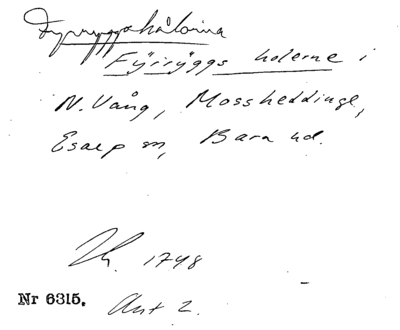 Fyrryggahålorna
Fÿrrÿggs holerne i
N. Vång, Mossheddinge,
Esarp sn, Bara hd.
Lh. 1748
Nr 6315. Akt 2.